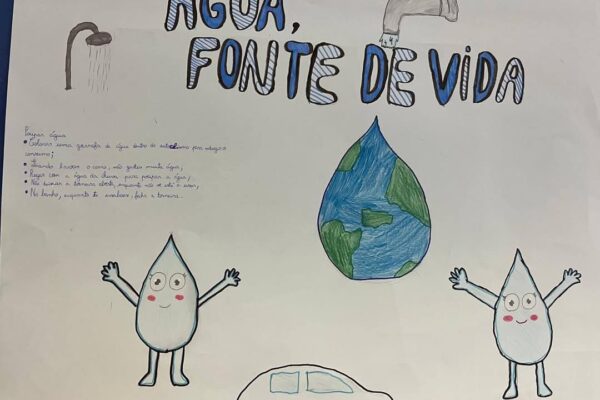 ÁGUA,
FONTE DE VIDA
Poupar água
• Colocar uma garrafa de água dentro do autoclismo para reduzir o
consumo;
• Quando lavarem o carro, não gastes muita água;
• Regar com a água da chuva para poupar a água;
• Não deixar a torneira aberta, enquanto não se está a usar;
• No banho, enquanto te ensaboas, fecha a torneira.